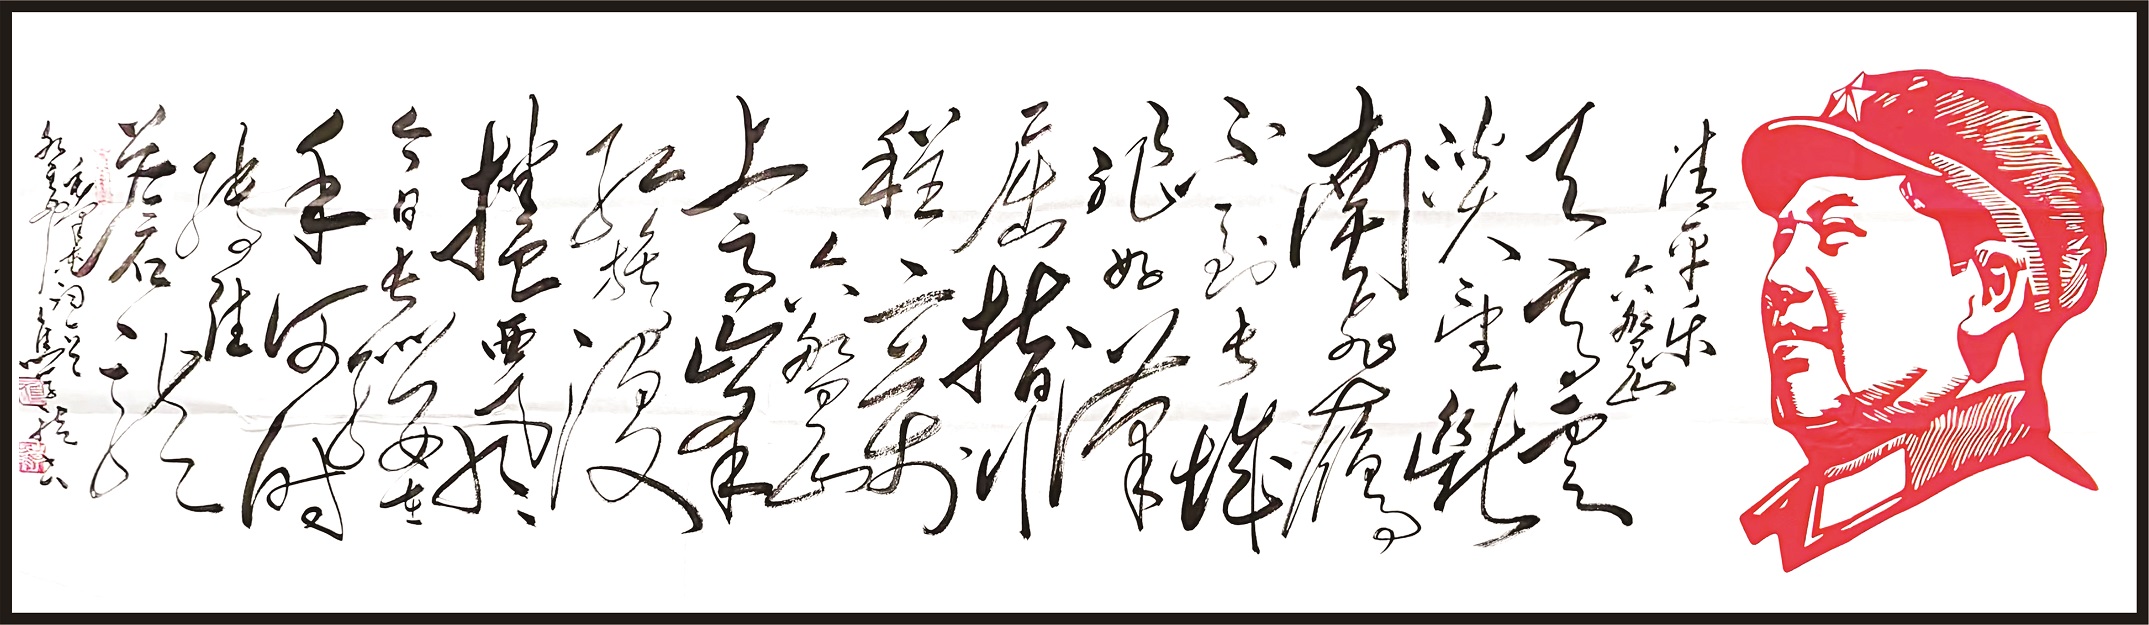 清平乐
六盘山
天高云
淡望断
南飞雁
不到长城
非好汉
屈指行
程二万
六盘山
上高峰
红旗漫
捲西风
今日长缨在
手何时
缚住
苍龙
毛泽东词